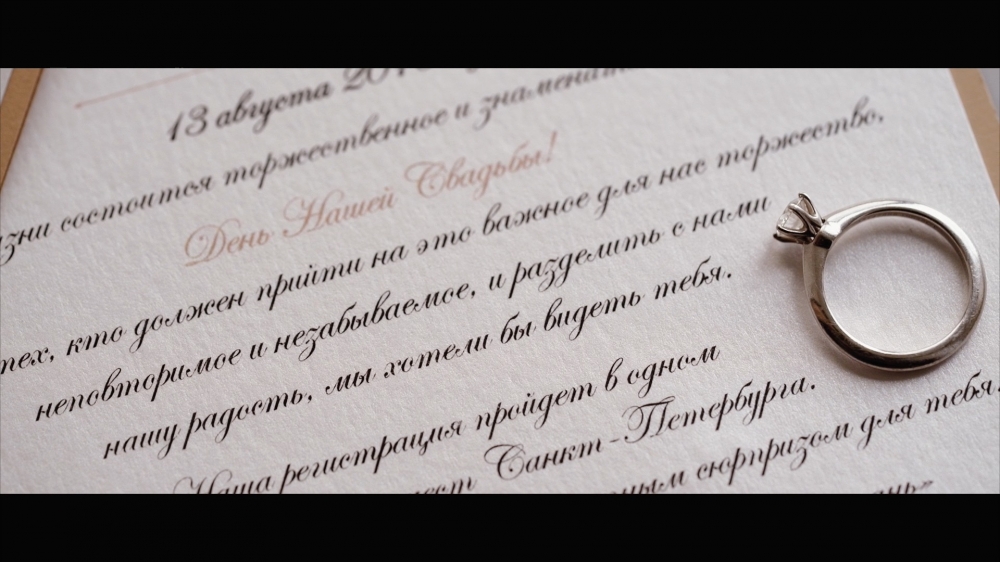 13 августа
зни состоится торжественное и знаменат
День Нашей Свадьбы!
тех, кто должен прийти на это важное для нас торжество,
неповторимое и незабываемое, и разделить с нами
нашу радость, мы хотели бы видеть тебя.
Наша регистрация пройдет в одном
мест Санкт-Петербурга.
ным сюрпризом для тебя